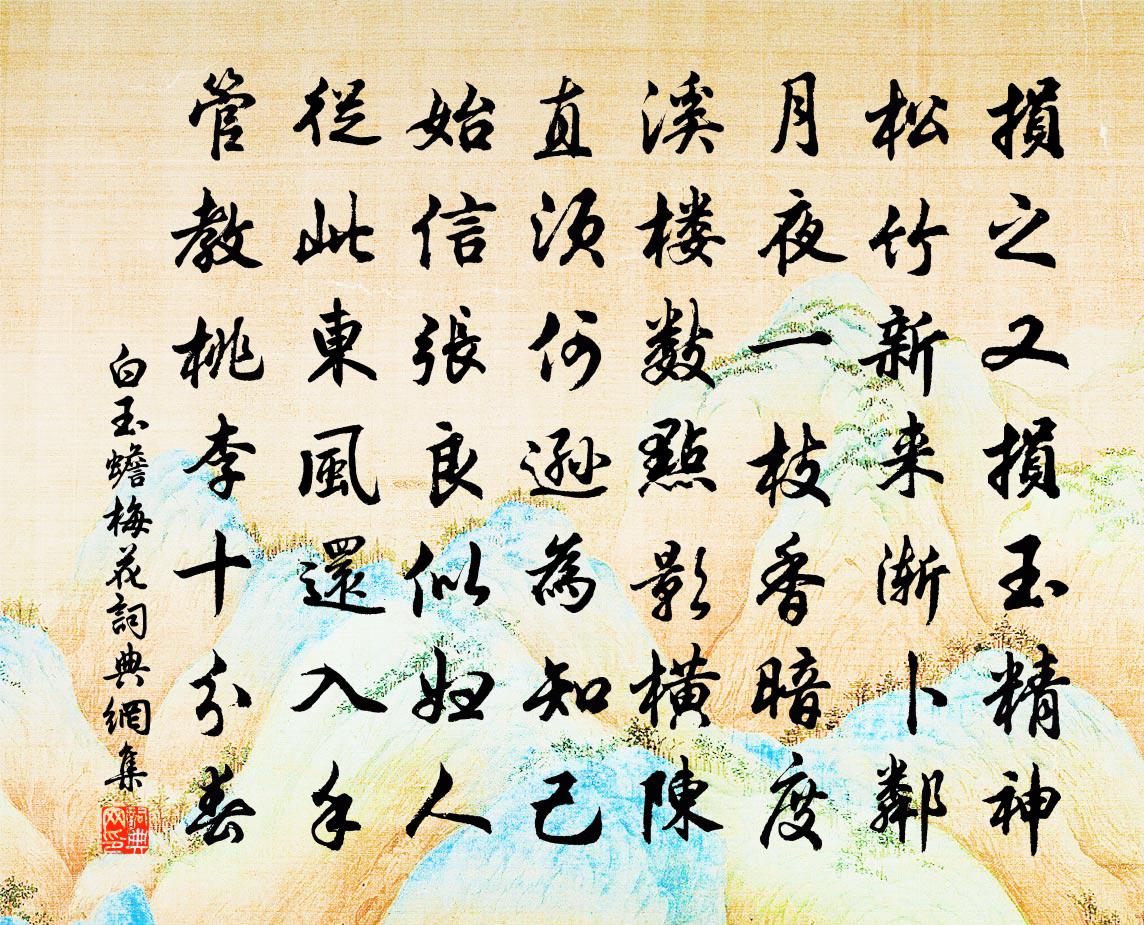 損之又損玉精神
松竹新来渐卜鄰
月夜一枝香暗度
溪楼數點影横陳
直須何遜為知己
始信張良似婦人
従此東風還入手
管教桃李十分春
白玉蟾梅花詞典網集
詞典網印